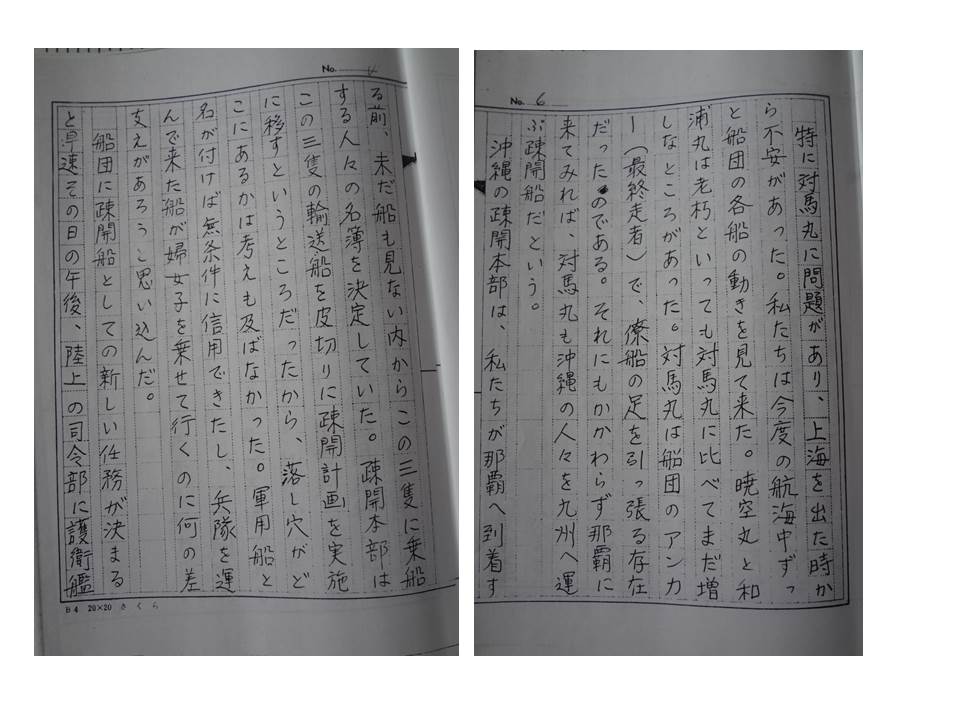 No. 6
特に対馬丸に問題があり、上海を出た時か
ら不安があった。私たちは今度の航海中ずっ
と船団の各船の動きを見て来た。暁空丸と和
浦丸は老朽といっても対馬丸に比べてまだ増
しなところがあった。対馬丸は船団のアンカ
ー(最終走者)で、僚船の足を引っ張る存在
だったのである。それにもかかわらず那覇に
来てみれば、対馬丸も沖縄の人々を九州へ運
ぶ疎開船だという。
沖縄の疎開本部は、私たちが那覇へ到着す
No.
る前、未だ船も見ない内からこの三隻に乗船
する人々の名簿を決定していた。疎開本部は
この三隻の輸送船を皮切りに疎開計画を実施
に移すというところだったから、落し穴がど
こにあるかは考えも及ばなかった。軍用船と
名が付けば無条件に信用できたし、兵隊を運
んで来た船が婦女子を乗せて行くのに何の差
支えがあろうと思い込んだ。
船団に疎開船としての新しい任務が決まる
と早速その日の午後、陸上の司令部に護衛艦
B4 20×20 さくら